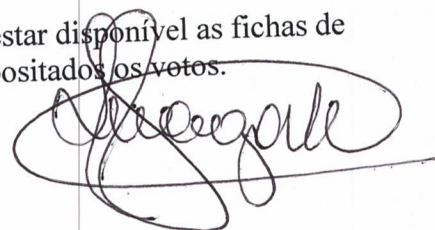 estar disponível as fichas de
positados os votos.